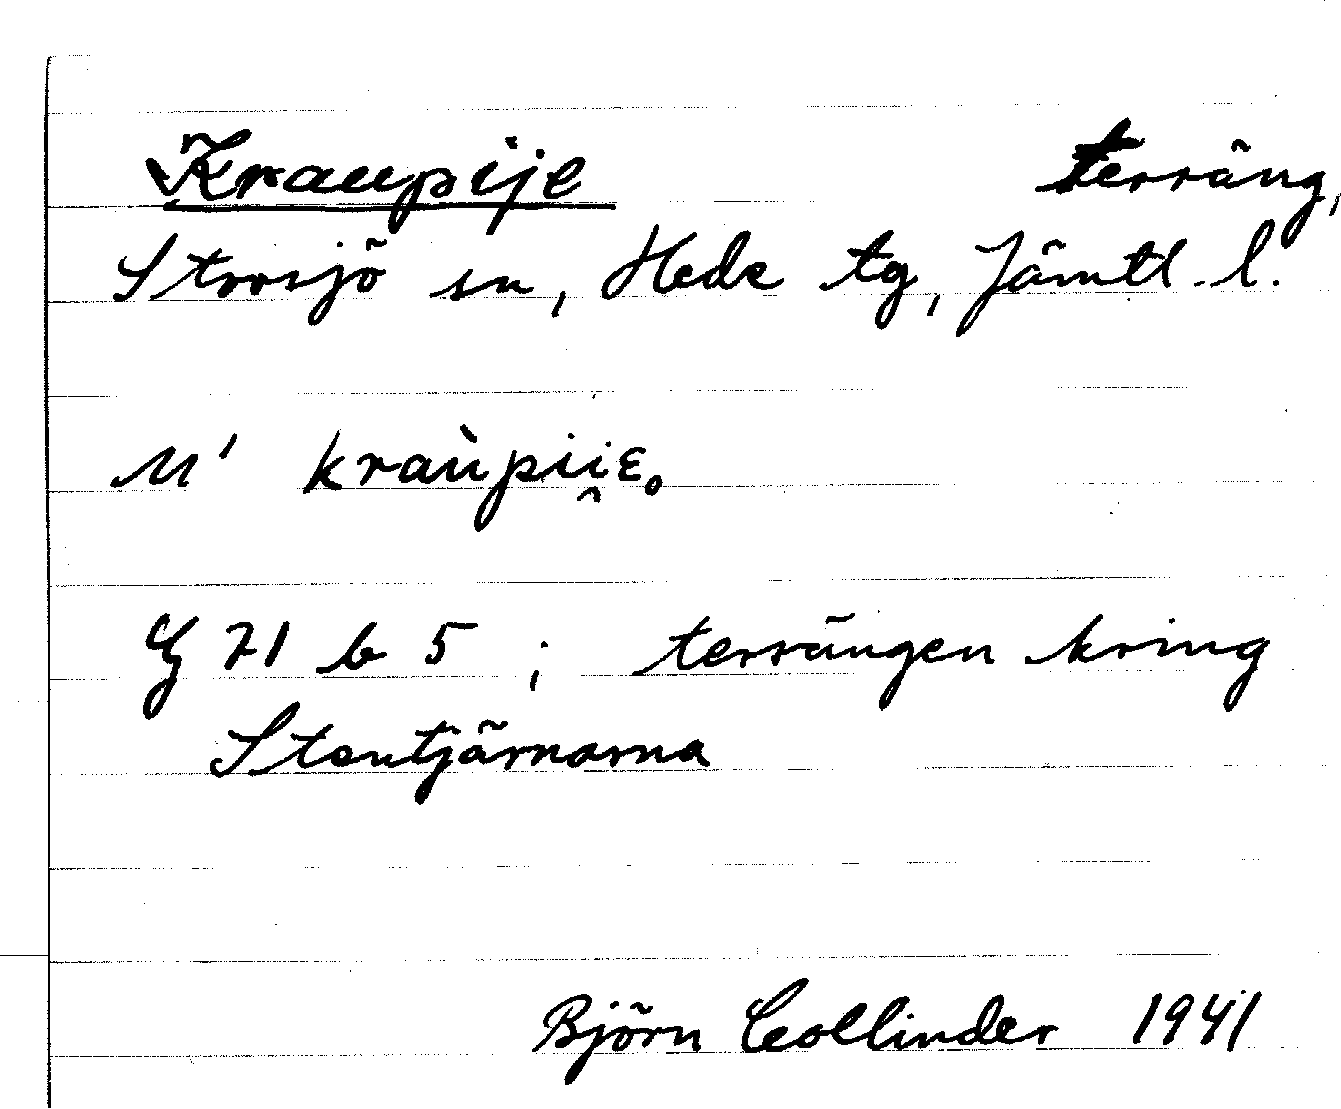 Kraupije terräng,
Storsjö sn, Hede tg, Jämtl. l.
M' kraùpii̯ɛ˳
G 71 b 5 ; terrängen kring
Stentjärnarna
Björn Collinder 1941